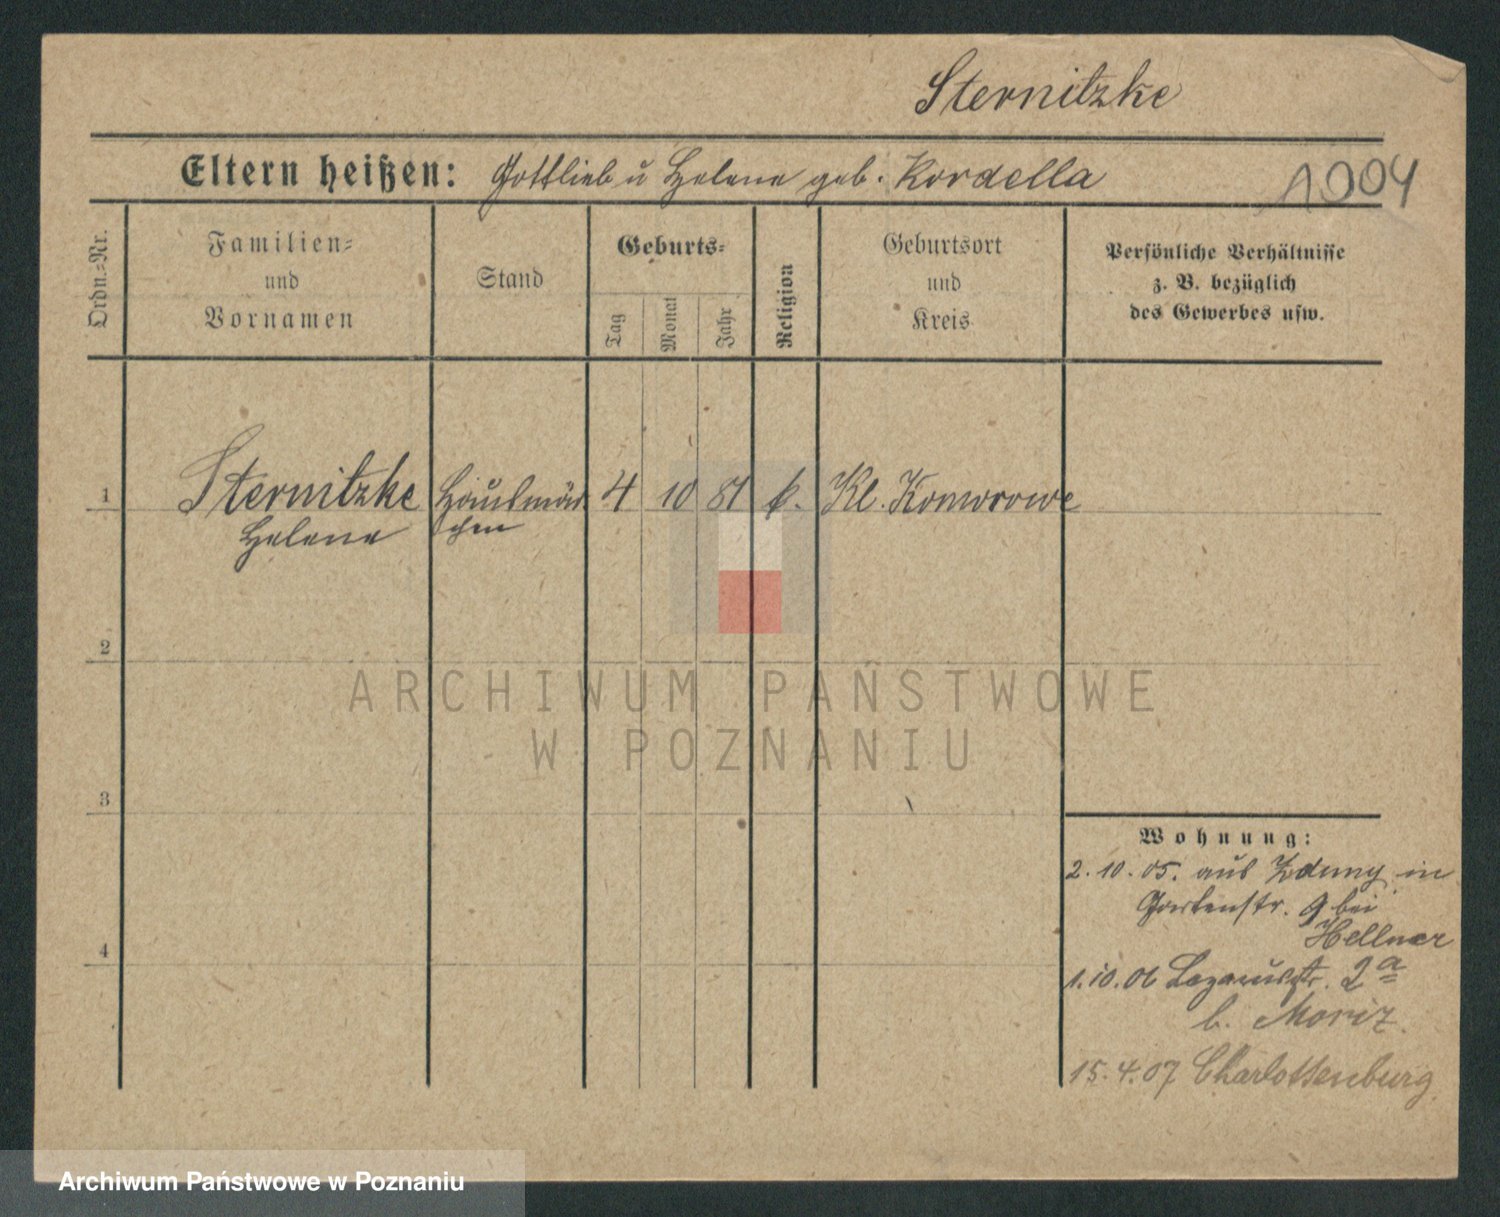 Sternitzke
Eltern heißen: Gottlieb u Helene geb. Kordella
1004
Ordn.=Nr.
Familien=
und
Vornamen
Stand
Geburts=
Tag
Monat
Jahr
Religion
Geburtsort
und
Kreis
Persönliche Verhältnisse
z. B. bezüglich
des Gewerbes usw.
1 Sternitzke Hausmäd 4 10 81 k. Kl. Komorowe
Helene chen
2
ARCHIWUM PAŃSTWOWE
W POZNANIU
3
Wohnung:
2.10.05. aus Zduny in
Gartenstr. 9 bei
Hellner
4
1.10.06 Lazarusstr. 2a
b. Moriz
15.4.07 Charlottenburg
Archiwum Państwowe w Poznaniu